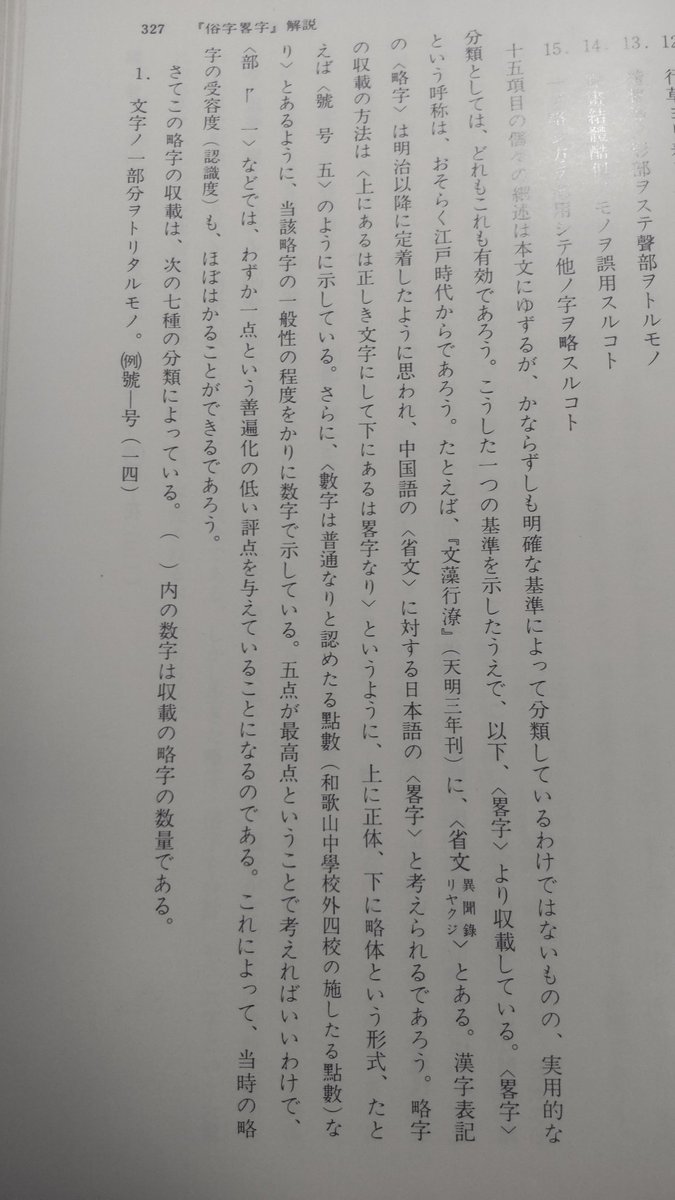 13. 部ヲステ聲部ヲトルモノ
14. モノヲ誤用スルコト
15. 用シテ他ノ字ヲ略スルコト
十五項目の個々の細述は本文にゆずるが、かならずしも明確な基準によって分類しているわけではないものの、実用的な
分類としては、どれもこれも有効であろう。こうした一つの基準を示したうえで、以下、〈畧字〉より収載している。〈畧字〉
という呼称は、おそらく江戸時代からであろう。たとえば、『文藻行潦』(天明三年刊)に、〈省文 異聞錄 リヤクジ〉とある。漢字表記
の〈略字〉は明治以降に定着したように思われ、中国語の〈省文〉に対する日本語の〈畧字〉と考えられるであろう。略字
の収載の方法は〈上にあるは正しき文字にして下にあるは畧字なり〉というように、上に正体、下に略体という形式、たと
えば〈號 号 五〉のように示している。さらに、〈數字は普通なりと認めたる點數(和歌山中學校外四校の施したる點數)な
り〉とあるように、当該略字の一般性の程度をかりに数字で示している。五点が最高点ということで考えればいいわけで、
〈部 卩 一〉などでは、わずか一点という善遍化の低い評点を与えていることになるのである。これによって、当時の略
字の受容度(認識度)も、ほぼはかることができるであろう。
さてこの略字の収載は、次の七種の分類によっている。( )内の数字は収載の略字の数量である。
1. 文字ノ一部分ヲトリタルモノ。㈲號—号(一四)
327 『俗字畧字』解説